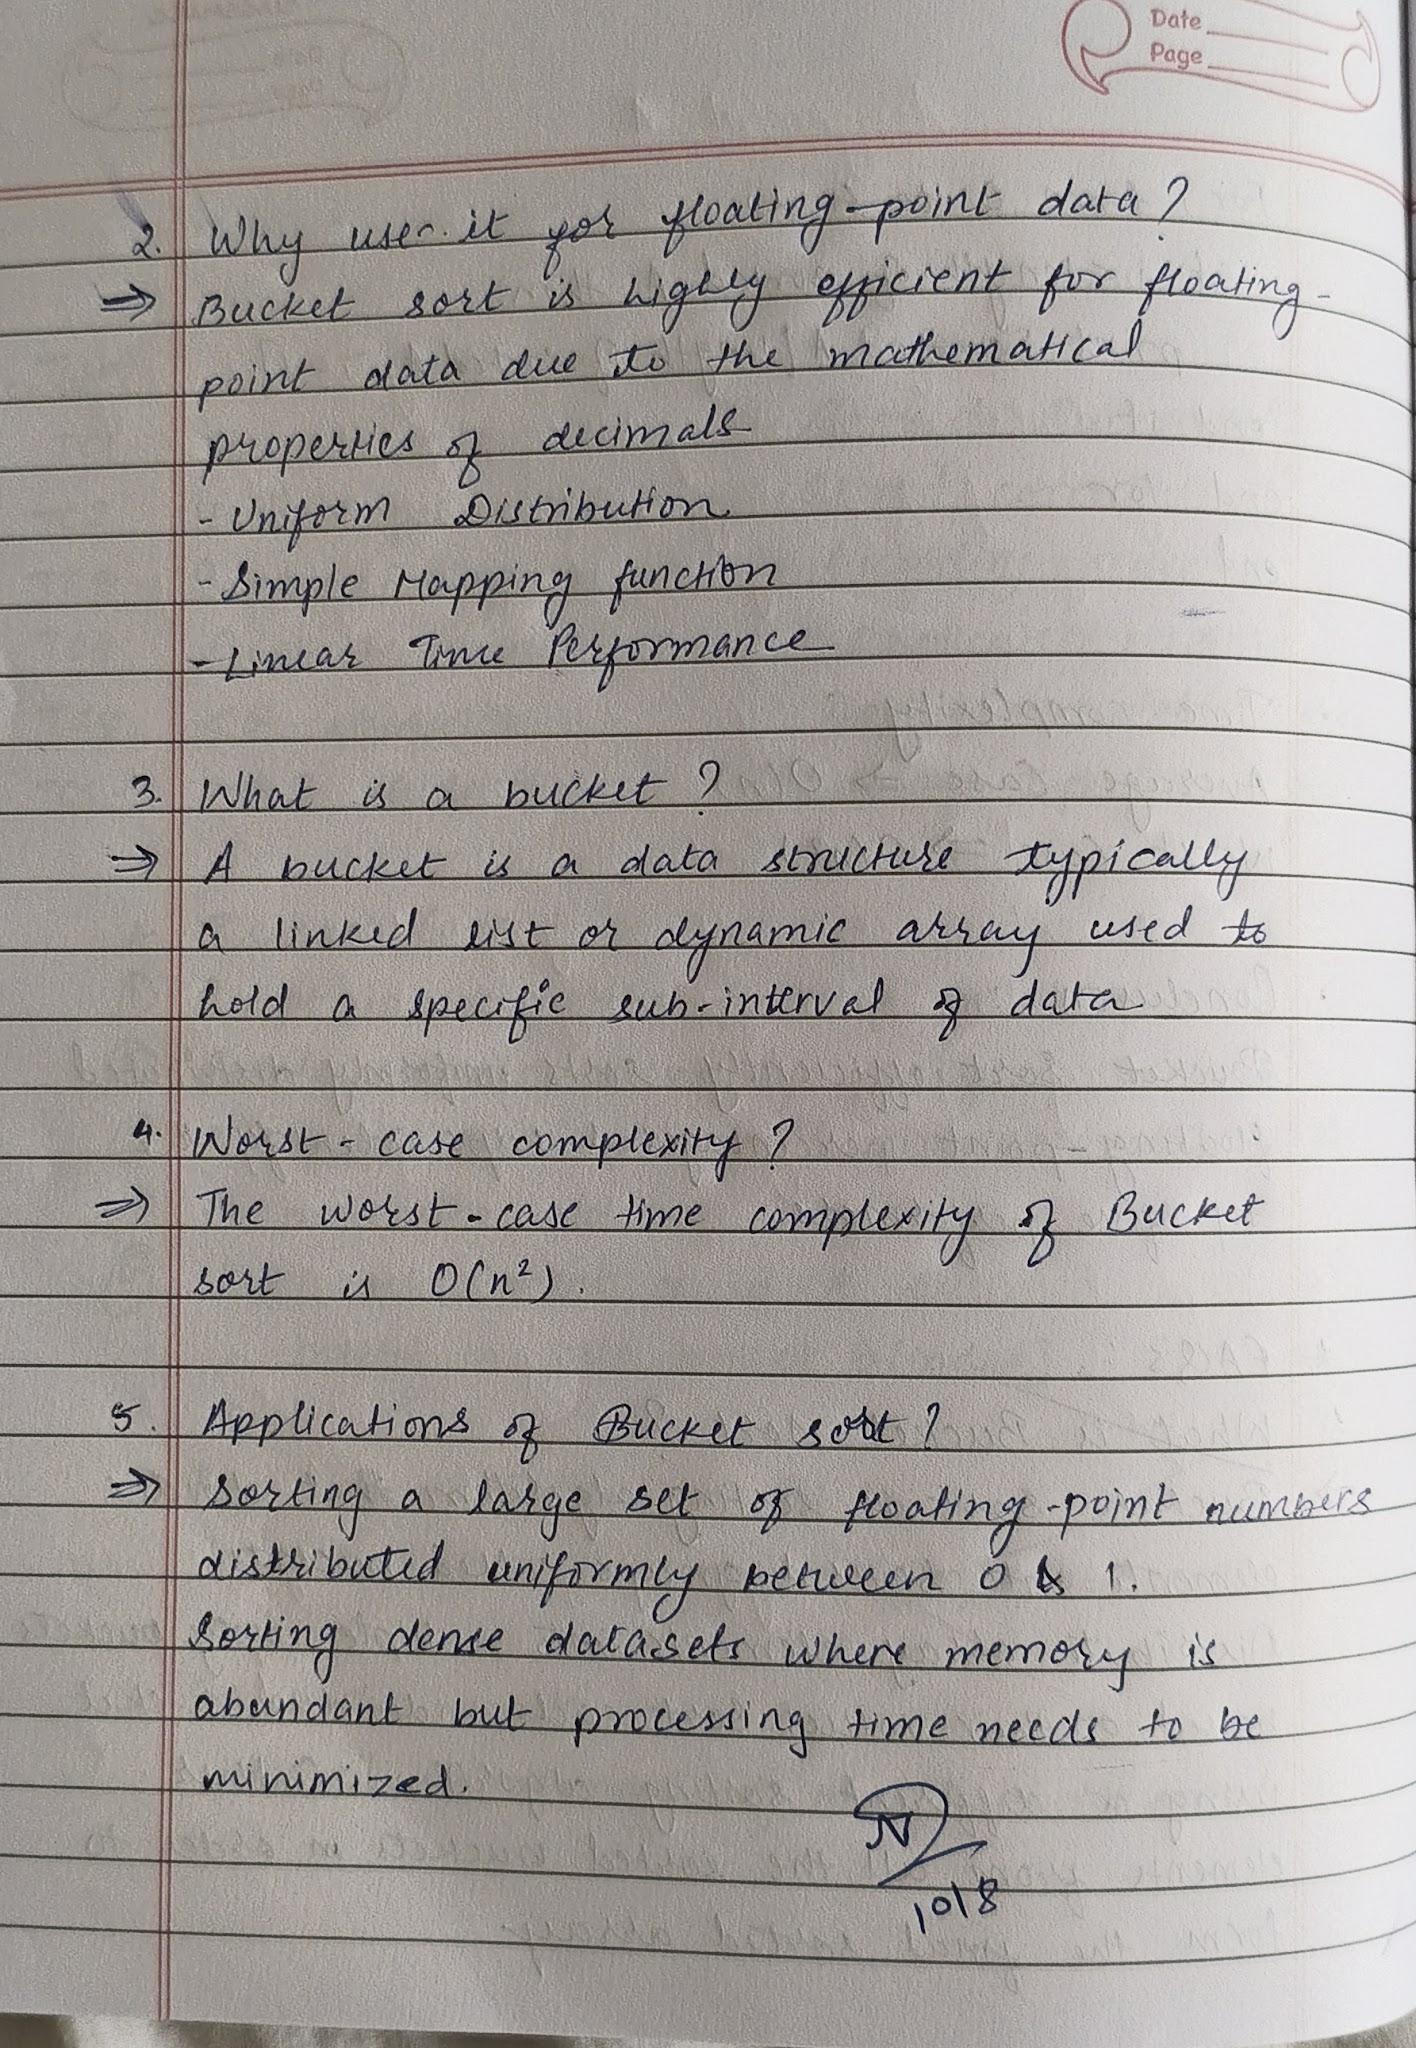 Date
Page
2. Why use it for floating-point data?
⇒ Bucket sort is highly efficient for floating-
point data due to the mathematical
properties of decimals
- Uniform Distribution
- Simple Mapping function
- Linear Time Performance
3. What is a bucket ?
⇒ A bucket is a data structure typically
a linked list or dynamic array used to
hold a specific sub-interval of data
4. Worst-case complexity ?
⇒ The worst-case time complexity of Bucket
sort is O(n²).
5. Applications of Bucket sort ?
⇒ Sorting a large set of floating-point numbers
distributed uniformly between 0 & 1.
Sorting dense datasets where memory is
abundant but processing time needs to be
minimized.
10/8